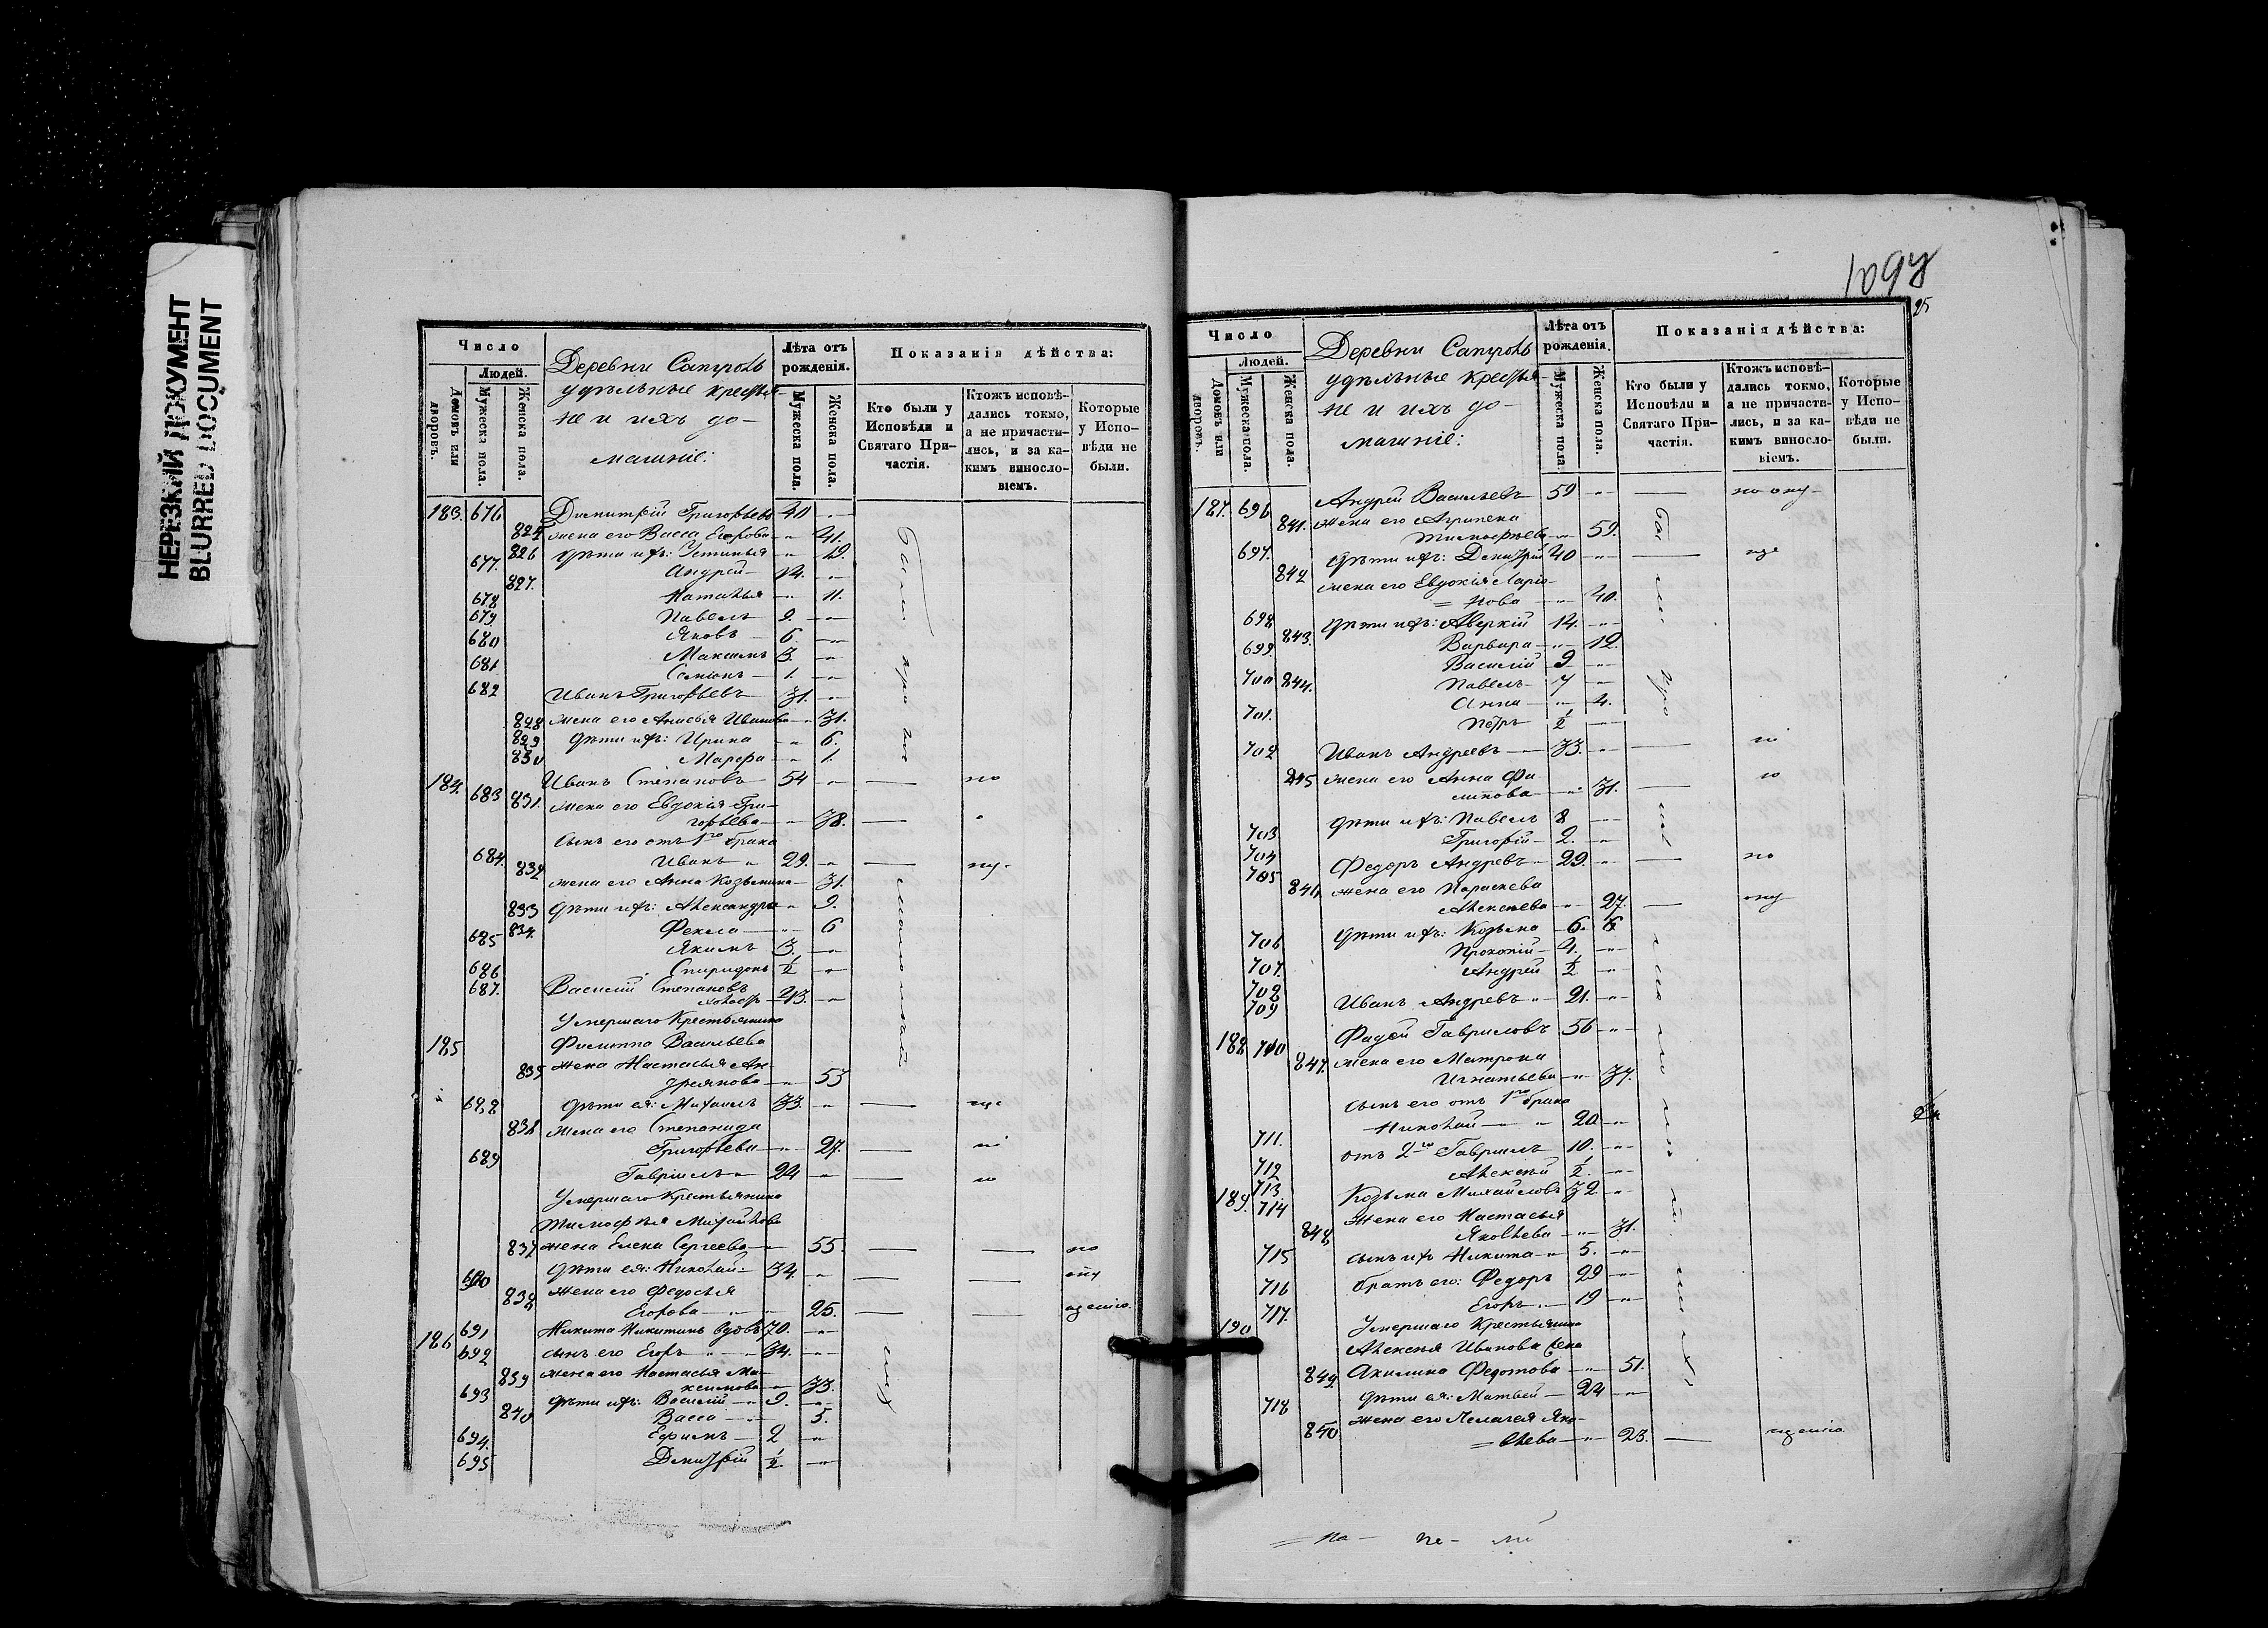 НЕРЕЗКИЙ ДОКУМЕНТ
BLURRED DOCUMENT
Число
Людей.
Домовъ или дворовъ.
Мужеска пола.
Женска пола.
Деревни
удѣльные крестья-
не и ихъ до-
машніе:
Лѣта отъ рожденія.
Мужеска пола.
Женска пола.
Показанія дѣйства:
Кто были у Исповѣди и Святаго Причастія.
Ктожъ исповѣ-
дались токмо,
а не причасти-
лись, и за ка-
кимъ винословіемъ.
Которые
у Испо-
вѣди не
были.
183. 676 Димитрій Григорьевъ 40
жена его Васса Егорова 41.
826 дѣти ихъ: Устинья 19.
677. Андрей 14.
827. Наталья 11.
678 Павелъ 9.
679 Яковъ 6.
680 Максимъ 3.
681 Семіонъ 1.
682 Иванъ Григорьевъ 31.
828 жена его Анисья Иванова 31.
829 дѣти ихъ: Ирина 6.
830 Марфа 1.
184. 683 Иванъ Степановъ 54
831. жена его Евдокія Гри-
горьева 38.
сынъ его отъ 1го брака
684. Иванъ 29.
832 жена его Анна Козьмина 31.
833 дѣти ихъ: Александра 9.
834. Фекла 6
685 Якимъ 3.
686 Спиридонъ ½
687. Василій Степановъ
холостъ 23.
Умершаго Крестьянина
185 Филиппа Васильева
835 жена Настасья Ан-
дреянова 53
688 дѣти ея: Михаилъ 33.
836 жена его Степанида
Григорьева 27.
689 Гавріилъ 24
Умершаго Крестьянина
Тимофѣя Михайлова
837 жена Елена Сергеева 55.
690 дѣти ея: Николай 34.
838 жена его Федосья
Егорова 25.
186 691 Никита Никитинъ вдовъ 70.
692 сынъ его Егоръ 34.
839 жена его Настасья Ма-
ксимова 33.
693 дѣти ихъ: Василій 9.
840 Васса 5.
694. Ефимъ 2
695 Димитрій ½.
109
Число
Людей.
Домовъ или дворовъ.
Мужеска пола.
Женска пола.
Деревни
удѣльные крестья-
не и ихъ до-
машніе:
Лѣта отъ рожденія.
Мужеска пола.
Женска пола.
Показанія дѣйства:
Кто были у Исповѣди и Святаго Причастія.
Ктожъ исповѣ-
дались токмо,
а не причасти-
лись, и за ка-
кимъ винословіемъ.
Которые
у Испо-
вѣди не
были.
187. 696 Андрей Васильевъ 59
841. жена его Агрипена
Тимофѣева 59.
697. дѣти ихъ: Димитрій 40
842 жена его Евдокія Ларіо-
нова 40.
698 дѣти ихъ: Аверкій 14.
843. Варвара 12.
699. Василій 9
700 Павелъ 7
844. Анна 4.
701. Петръ ½
702 Иванъ Андреевъ 33.
845 жена его Анна Фи-
липова 31.
703 дѣти ихъ: Павелъ 8
704 Григорій 2.
705 Федоръ Андревъ 29.
846 жена его Параскева
Алексѣева 27.
706 дѣти ихъ: Козьма 6.
707. Прокопій 4.
708 Андрей ½
709 Иванъ Андревъ 21.
188 710 Фадей Гавриловъ 56
847. жена его Матрона
Игнатьева 37.
сынъ его отъ 1го брака
711. Николай 20
712 отъ 2го Гаврилъ 10.
713. Алексѣй ½.
189. 714 Козьма Михайловъ 32.
848 жена его Настасья
Яковлева 31.
715 сынъ ихъ Никита 5.
716 братъ его: Федоръ 29
717. Егоръ 19
190 Умершаго Крестьянина
Алексѣя Иванова жена
849. Акилина Федотова 51.
718 дѣти ея: Матвей 24
850 жена его Пелагея Яко-
влева 23.